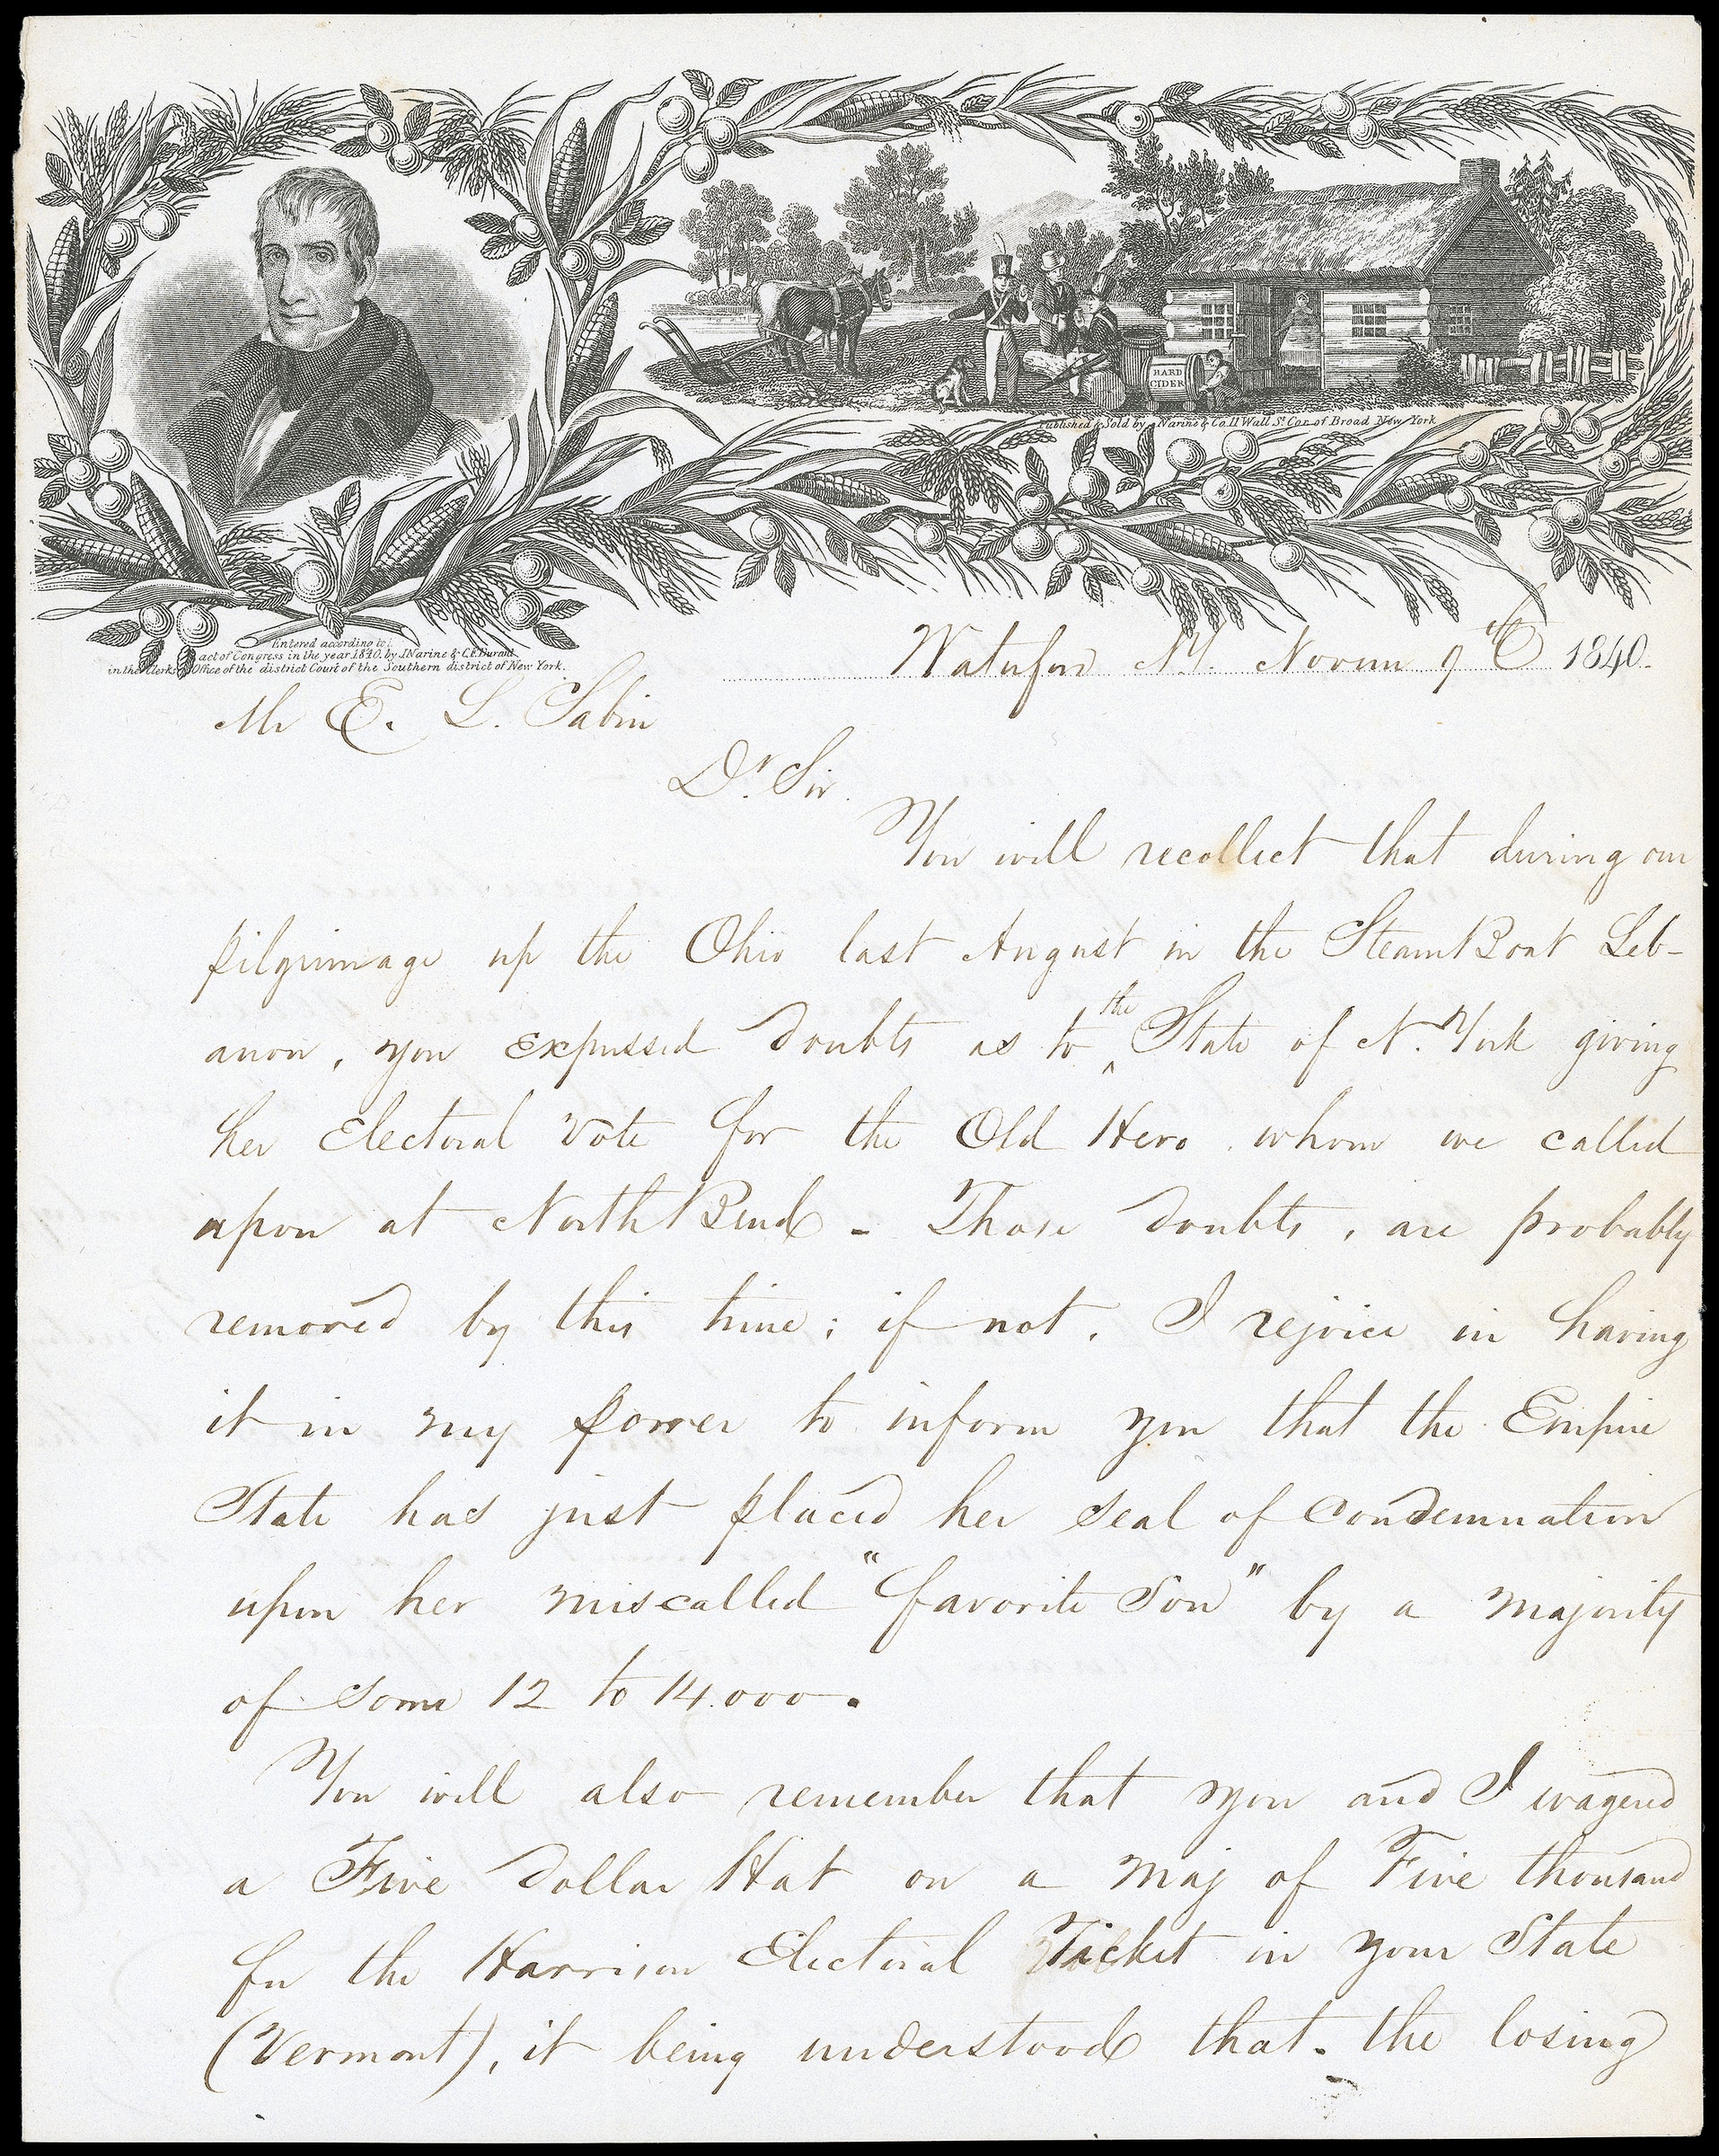 HARD
CIDER
Published & Sold by Narine & Co. 11 Wall St. Cor. of Broad New York
Entered according to
act of Congress in the year 1840. by J. Narine & C. F. Durand
in the Clerks Office of the district Court of the Southern district of New York.
Waterford N.Y. Novem 9th 1840.
Mr E. L. Sabin
Dr. Sir.
You will recollect that during our
pilgrimage up the Ohio last August in the SteamBoat Leb-
anon, you expressed doubts as to the State of N. York giving
her Electoral Vote for the Old Hero whom we called
upon at North Bend - Those doubts, are probably
removed by this time; if not, I rejoice in having
it in my power to inform you that the Empire
State has just placed her seal of condemnation
upon her miscalled "favorite Son" by a majority
of some 12 to 14.000.
You will also remember that you and I wagered
a Five dollar Hat on a maj of Five thousand
for the Harrison Electoral Ticket in your State
(Vermont), it being understood that. the losing